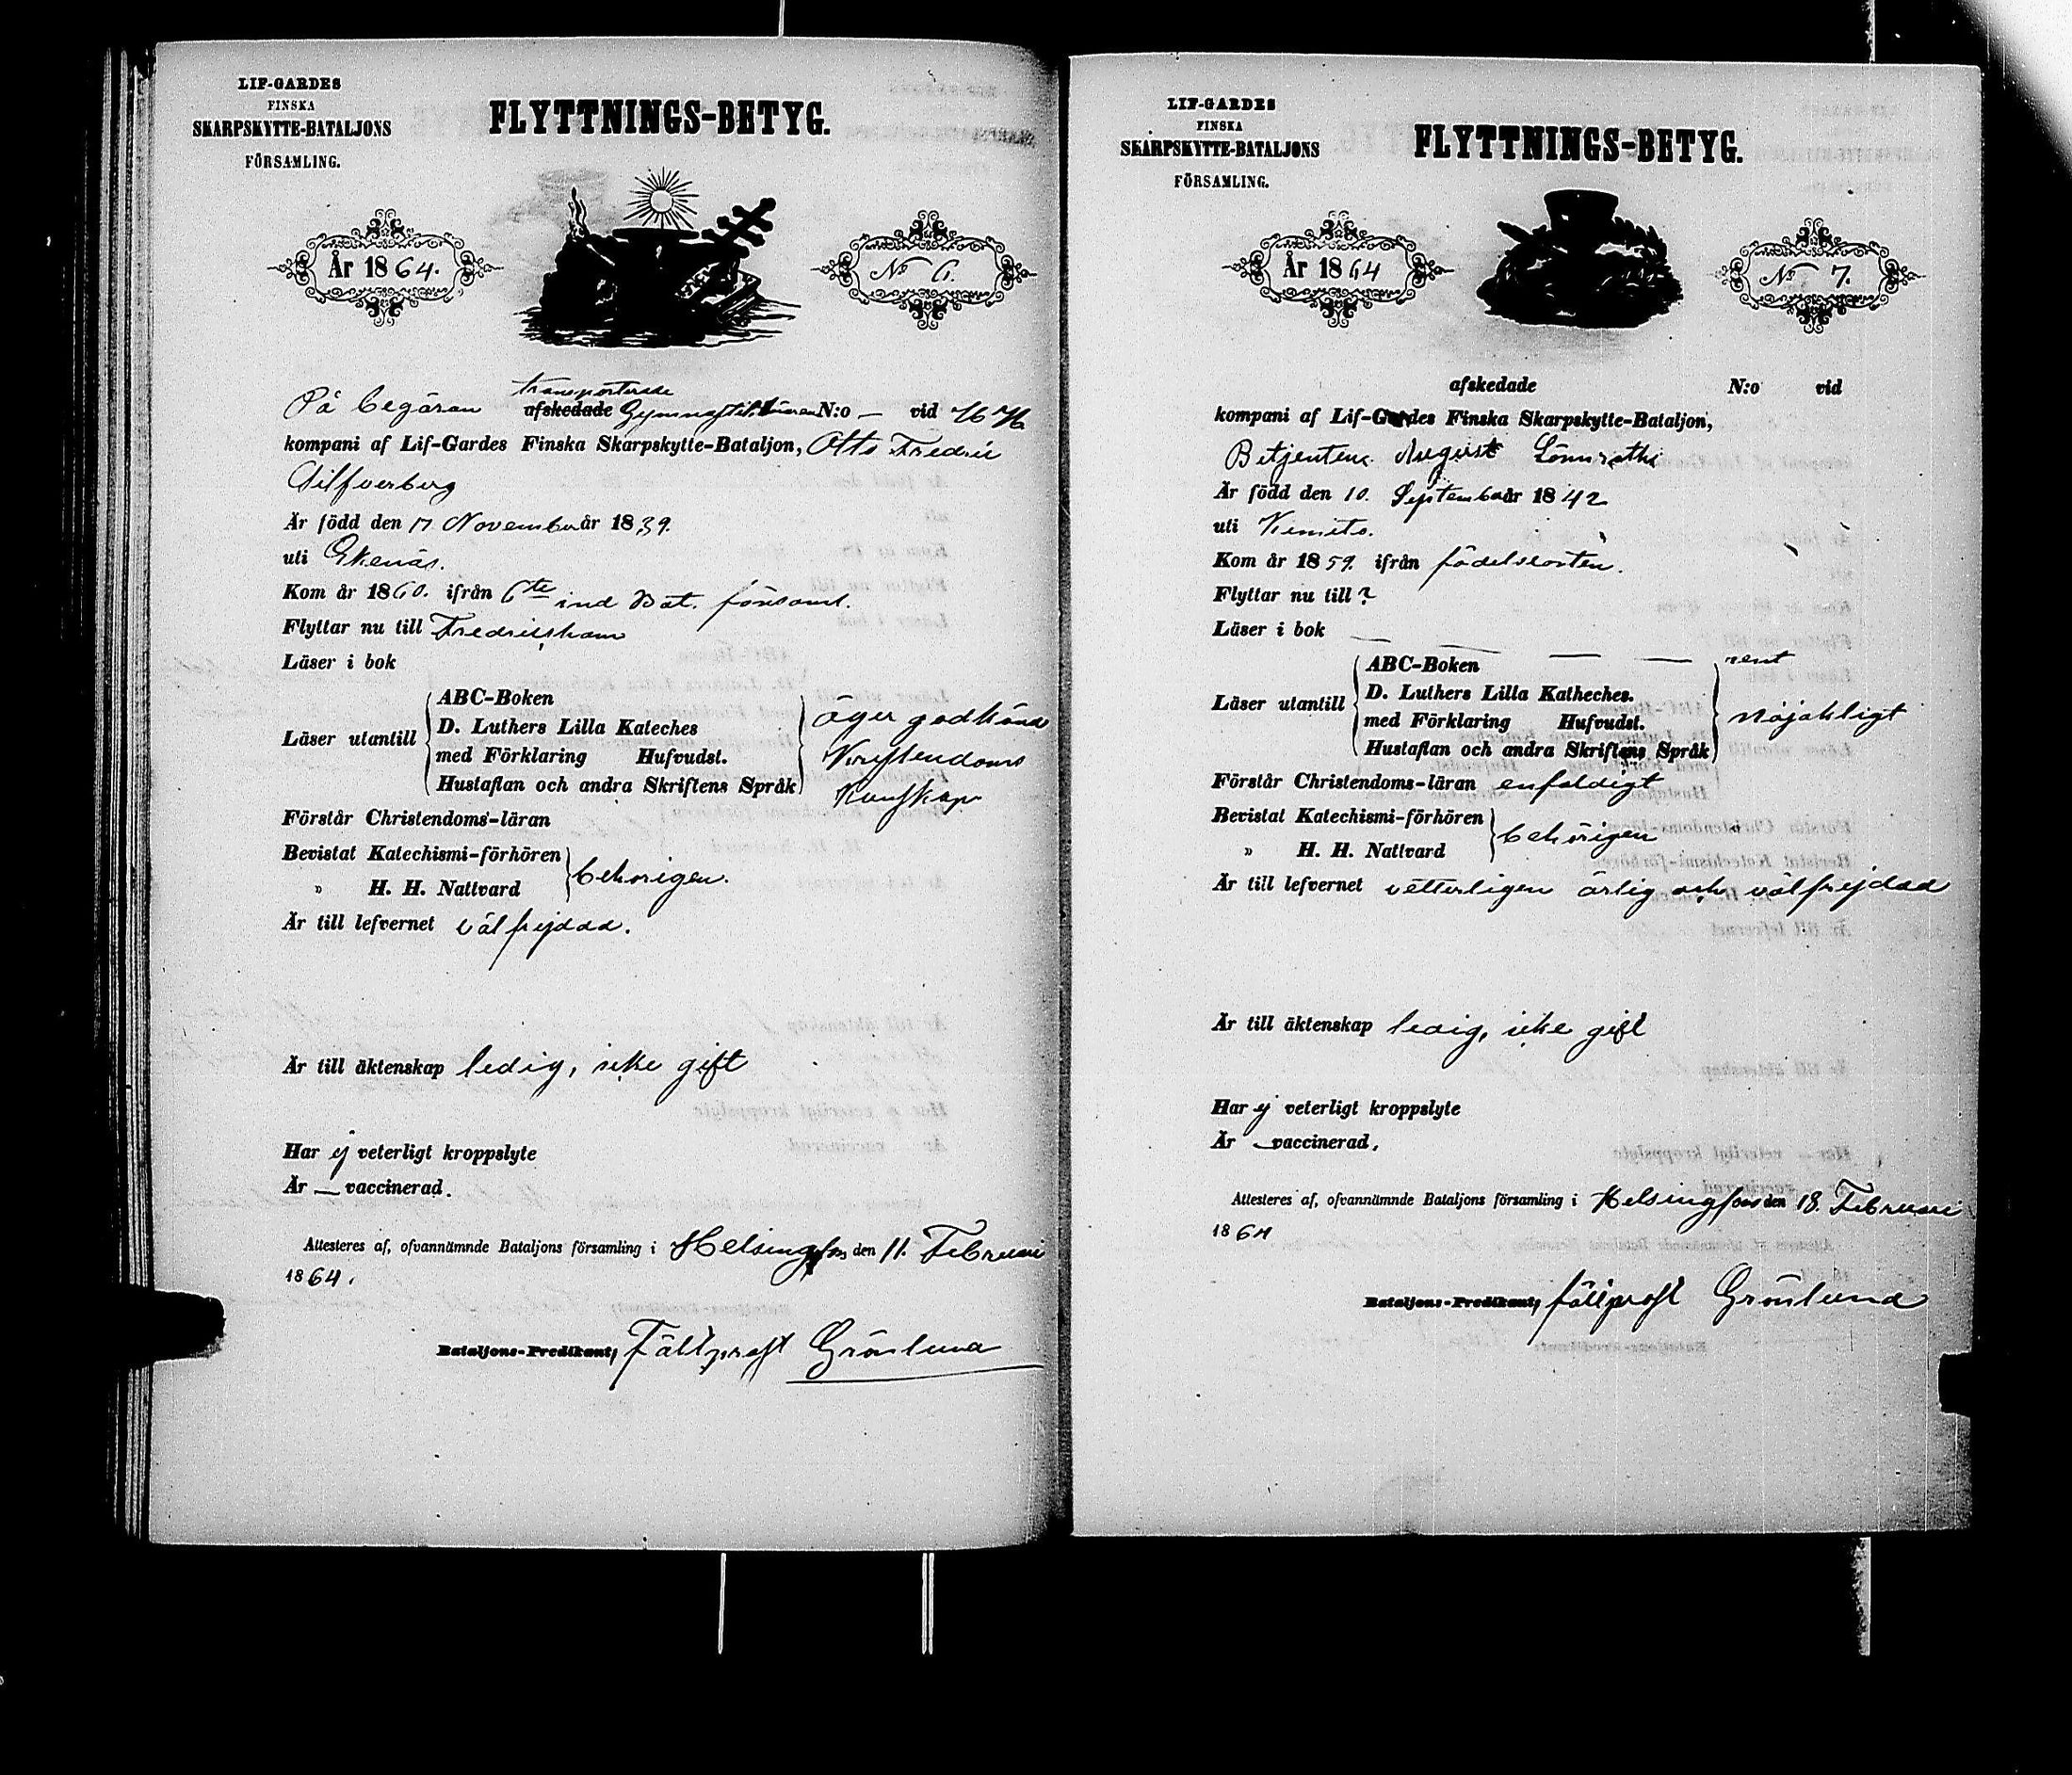 LIF-GARDES
FINSKA
SKARPSKYTTE-BATALJONS
FÖRSAMLING.
FLYTTNINGS-BETYG.
År 1864.
No 6.
transporterade
På begäran afskedade N:o — vid
kompani af Lif-Gardes Finska Skarpskytte-Bataljon, Otto Fredric
Silfverberg
Är född den 17 November år 1839.
uti Ekenäs.
Kom år 1860. ifrån 6te ind Bat. församl.
Flyttar nu till Fredrikshamn
Läser i bok
Läser utantill
ABC-Boken
D. Luthers Lilla Kateches
med Förklaring Hufvudst.
Hustaflan och andra Skriftens Språk
äger godkänd
Kristendoms
Kunskap
Förstår Christendoms-läran
Bevistat Katechismi-förhören
" H. H. Nattvard
behörigen.
Är till lefvernet välfrejdad.
Är till äktenskap ledig, icke gift
Har ej veterligt kroppslyte
Är — vaccinerad.
Attesteres af, ofvannämnde Bataljons församling i Helsingfors den 11. Februari
1864.
Bataljons-Predikant, Fältprost Grönlund
LIF-GARDES
FINSKA
SKARPSKYTTE-BATALJONS
FÖRSAMLING.
FLYTTNINGS-BETYG.
År 1864
No 7.
afskedade N:o vid
kompani af Lif-Gardes Finska Skarpskytte-Bataljon,
Betjenten August Lönnroth
Är född den 10. September år 1842
uti Kimito.
Kom år 1859. ifrån födelseorten.
Flyttar nu till ?
Läser i bok — — — rent
Läser utantill
ABC-Boken
D. Luthers Lilla Katheches.
med Förklaring Hufvudst.
Hustaflan och andra Skriftens Språk
nöjaktigt
Förstår Christendoms-läran enfaldigt
Bevistat Katechismi-förhören
" H. H. Nattvard
behörigen
Är till lefvernet vetterligen ärlig och välfrejdad
Är till äktenskap ledig, icke gift
Har ej veterligt kroppslyte
Är — vaccinerad.
Attesteres af, ofvannämnde Bataljons församling i Helsingfors den 18. Februari
1864
Bataljons-Predikant, fältprost Grönlund